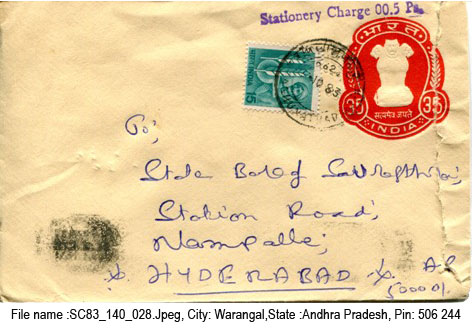 Stationery Charge 00.5 Ps.
भारत
35 35
सत्यमेव जयते
INDIA
15
To;
State Bank of
Station Road;
Nampalle;
HYDERABAD A.P
500001.
File name :SC83_140_028.Jpeg, City: Warangal,State :Andhra Pradesh, Pin: 506 244